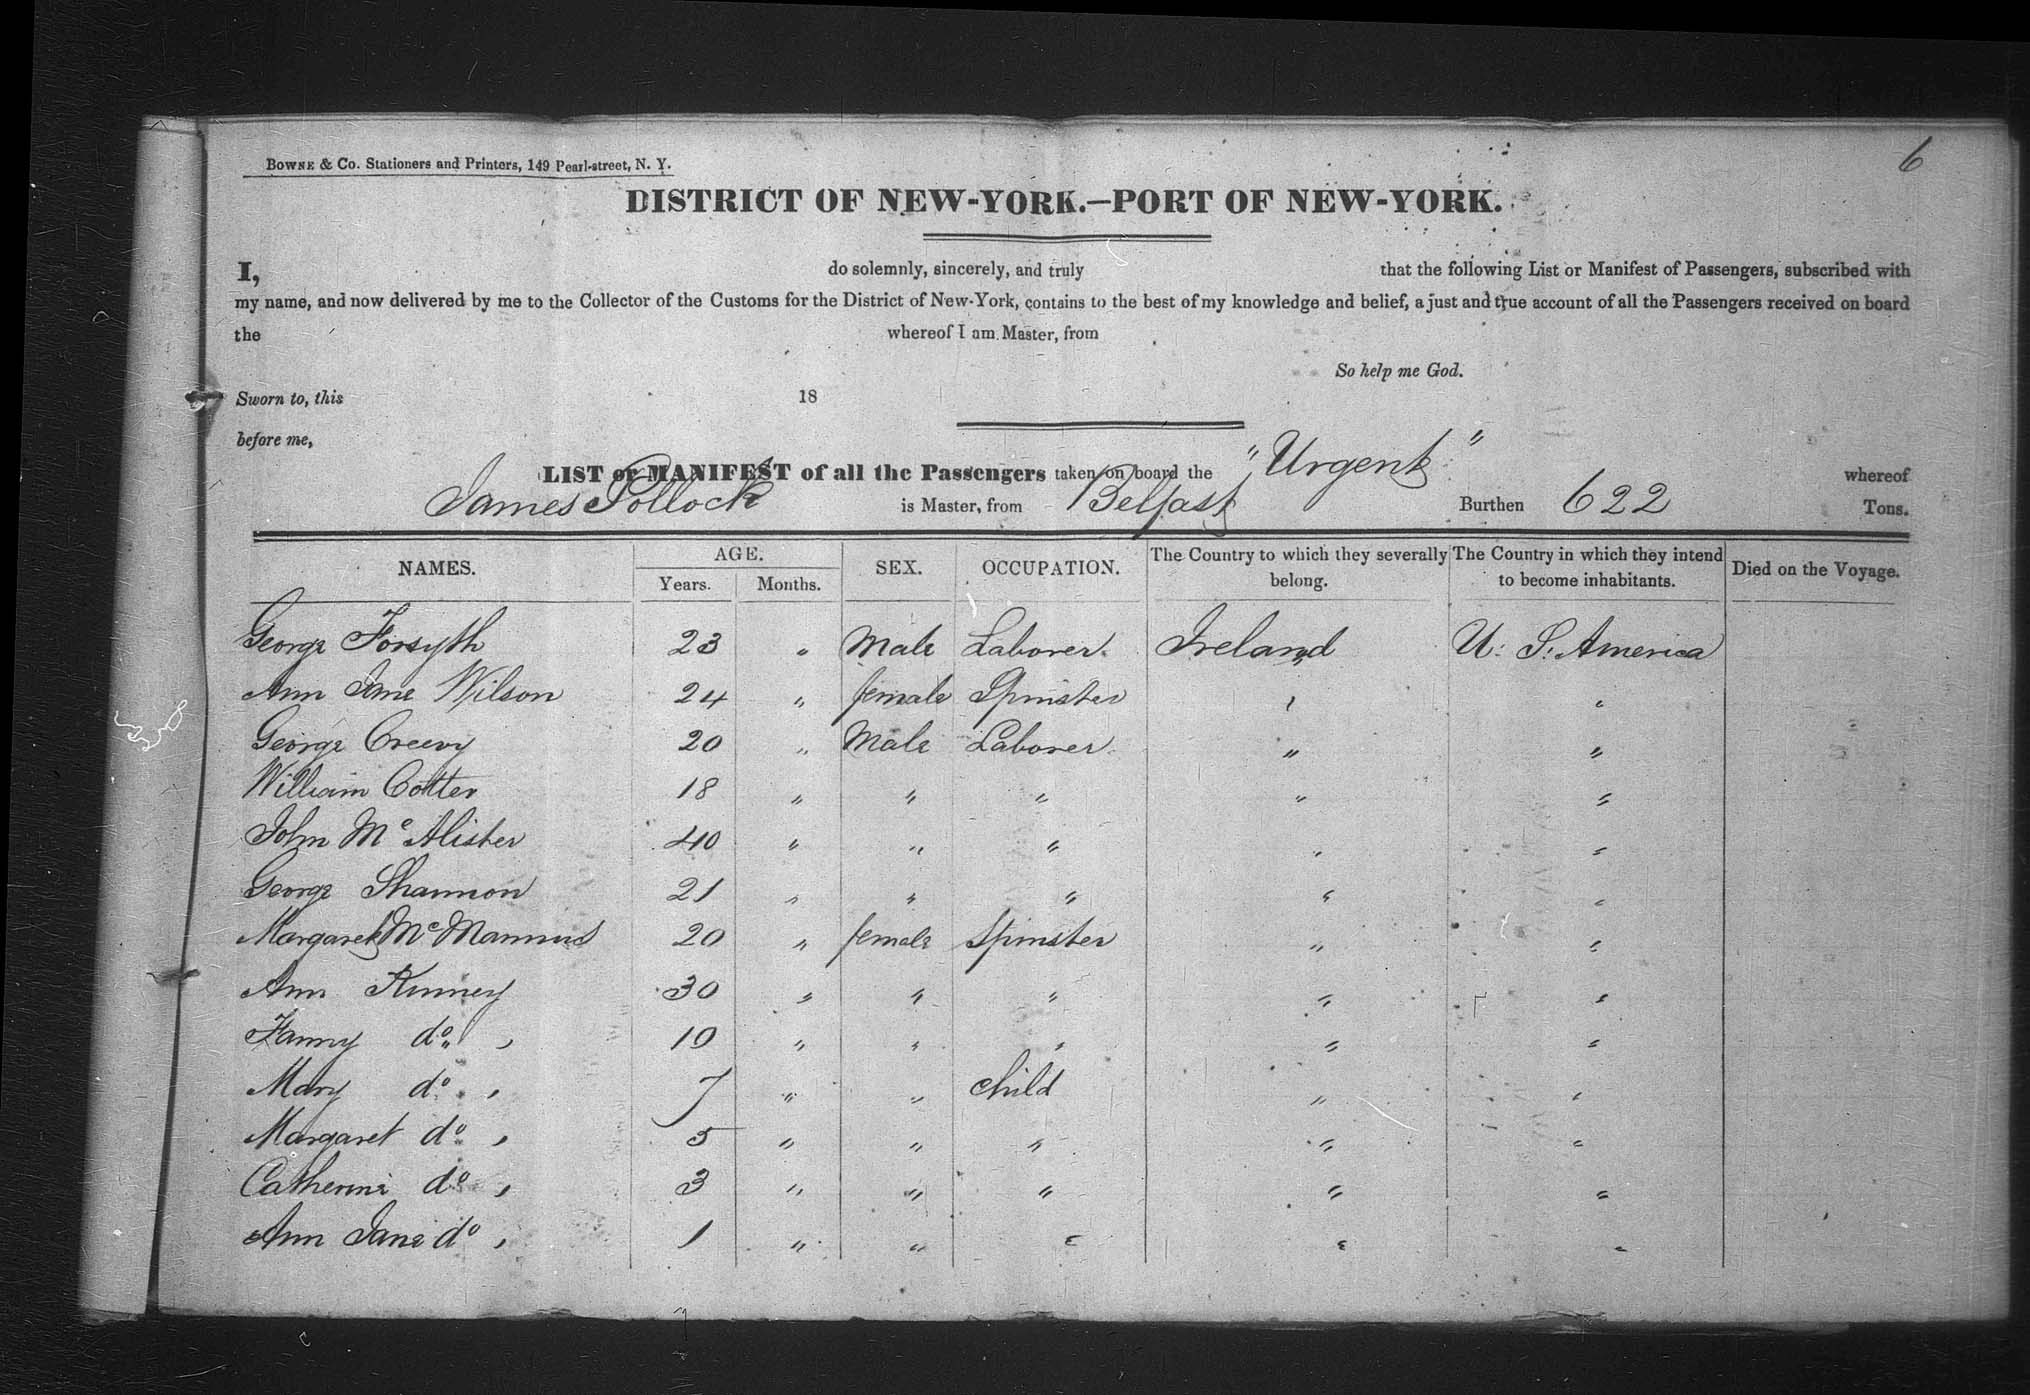 6
BOWNE & CO. Stationers and Printers, 149 Pearl-street, N. Y.
DISTRICT OF NEW-YORK.—PORT OF NEW-YORK.
I, do solemnly, sincerely, and truly that the following List or Manifest of Passengers, subscribed with
my name, and now delivered by me to the Collector of the Customs for the District of New-York, contains to the best of my knowledge and belief, a just and true account of all the Passengers received on board
the whereof I am Master, from
So help me God.
Sworn to, this 18
before me,
LIST or MANIFEST of all the Passengers taken on board the "Urgent" whereof
James Pollock is Master, from Belfast Burthen 622 Tons.
NAMES. AGE. SEX. OCCUPATION. The Country to which they severally belong. The Country in which they intend to become inhabitants. Died on the Voyage.
Years. Months.
George Forsyth 23 " Male Laborer Ireland U. S. America
Ann Jane Wilson 24 " female Spinster " "
George Creevy 20 " Male Laborer " "
William Cotter 18 " " " " "
John McAlister 40 " " " " "
George Shannon 21 " " " " "
Margaret McMannus 20 " female Spinster " "
Ann Kinney 30 " " " " "
Fanny do " 10 " " " " "
Mary do " 7 " " child " "
Margaret do " 5 " " " " "
Catherine do " 3 " " " " "
Ann Jane do " 1 " " " " "